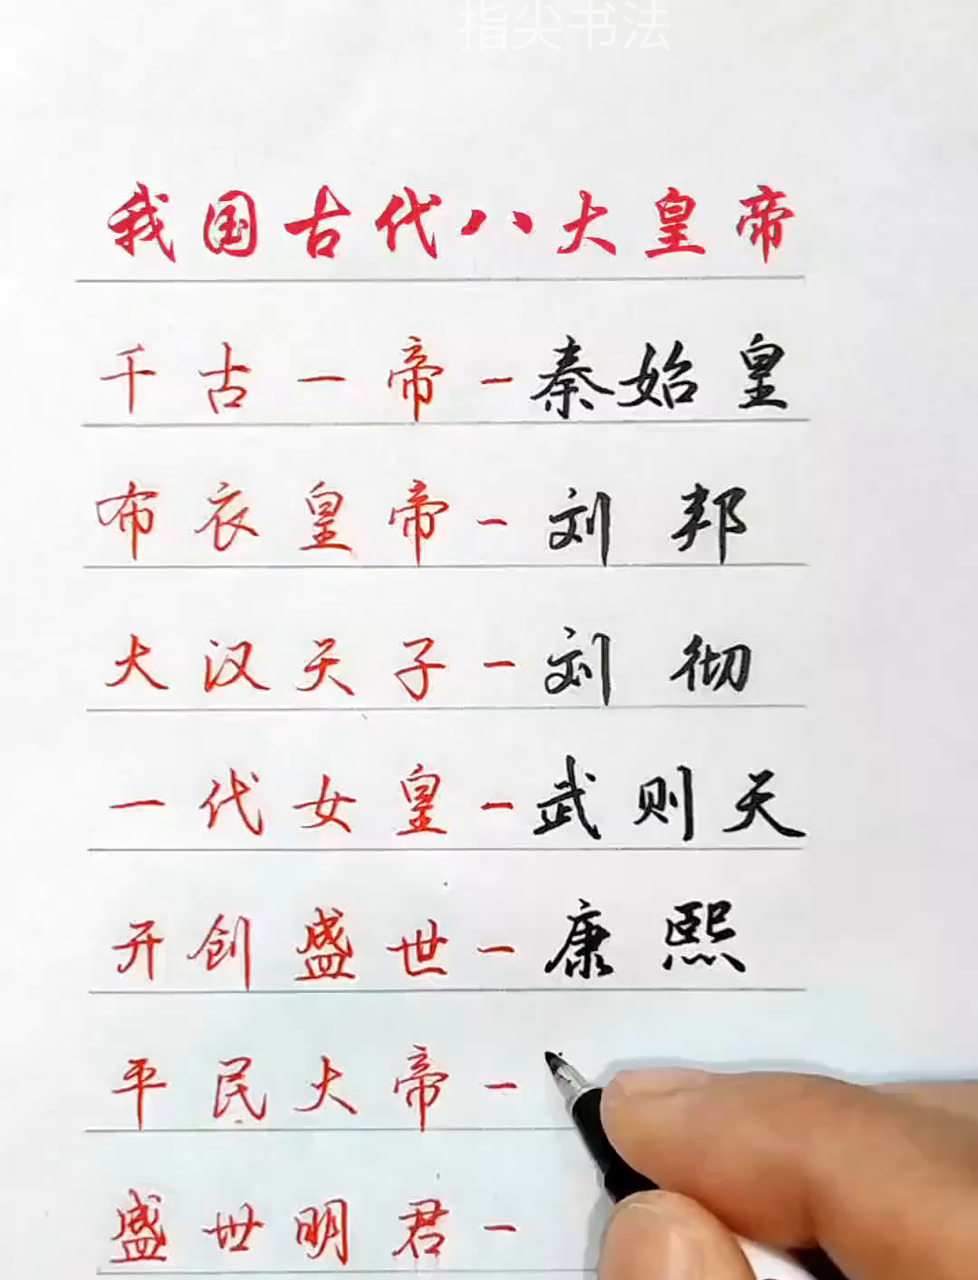 指尖书法
我国古代八大皇帝
千古一帝-秦始皇
布衣皇帝-刘邦
大汉天子-刘彻
一代女皇-武则天
开创盛世-康熙
平民大帝-
盛世明君-